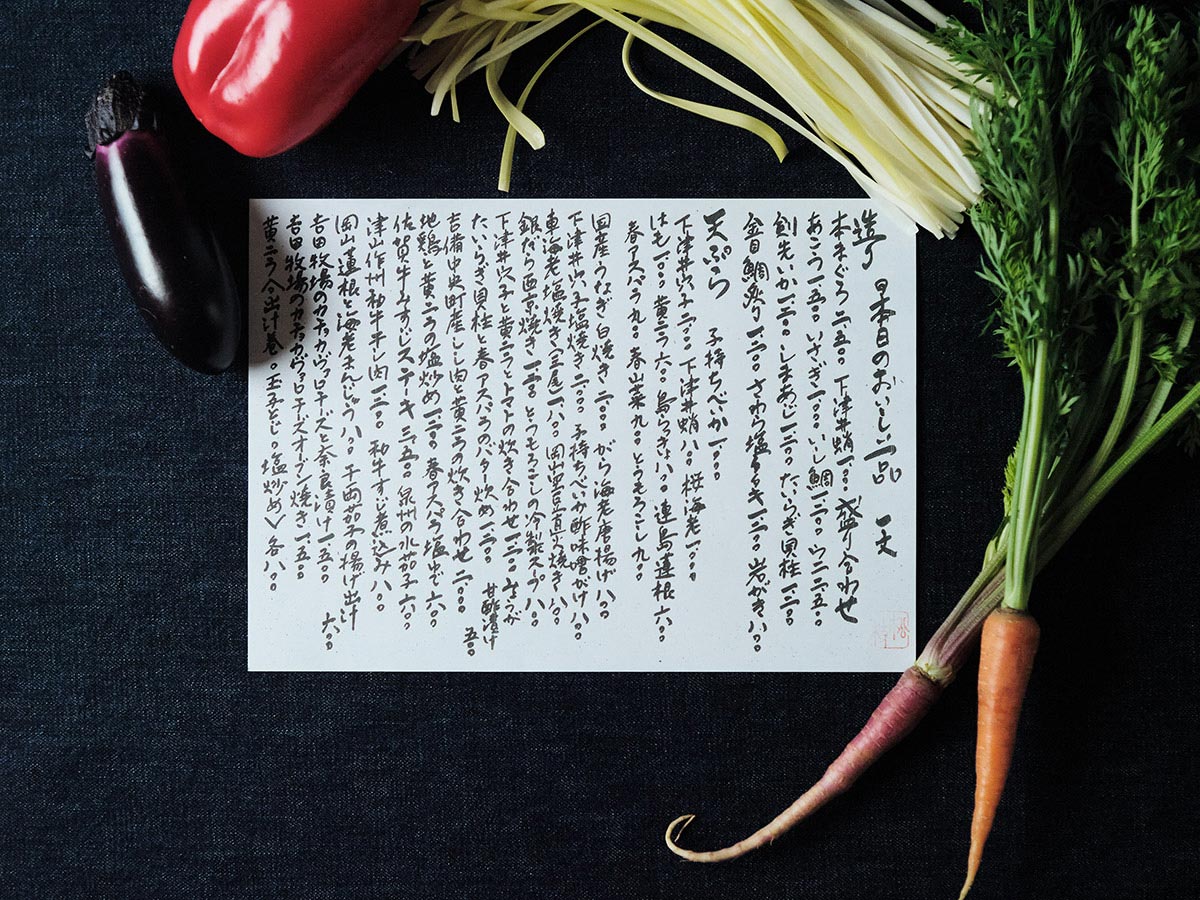 日本日のおいしい一品　一天
造り
本まぐろ二、五〇〇　下津井蛸一、〇〇〇　盛り合わせ
あこう一、五〇〇　いさぎ一、〇〇〇　いし鯛一、二〇〇　ウニ二、五〇〇
剣先いか一、二〇〇　しまあじ一、二〇〇　たいらぎ貝柱一、二〇〇
金目鯛炙り一、二〇〇　さわら塩タタキ一、二〇〇　岩がき八〇〇
天ぷら　子持ちべいか一、〇〇〇
下津井穴子二、〇〇〇　下津井蛸八〇〇　桜海老一、〇〇〇
はも一、〇〇〇　黄ニラ六〇〇　島らっきょ八〇〇　連島蓮根六〇〇
春アスパラ九〇〇　春山菜九〇〇　とうもろこし九〇〇
国産うなぎ白焼き二、〇〇〇　がら海老唐揚げ八〇〇
下津井穴子塩焼き二、〇〇〇　子持ちべいか酢味噌がけ八〇〇
車海老塩焼き(三尾)一、八〇〇　岡山空豆直火焼き八〇〇
銀だら西京焼き一、二〇〇　とうもろこしの冷製スープ八〇〇
下津井穴子と黄ニラとトマトの炊き合わせ一、二〇〇
たいらぎ貝柱と春アスパラのバター炒め一、二〇〇　甘酢漬け五〇〇
吉備中央町産しし肉と黄ニラの炊き合わせ二、〇〇〇
地鶏と黄ニラの塩炒め一、二〇〇　春の天豆塩ゆで六〇〇
佐賀牛みすじステーキ三、五〇〇　泉州の水茄子六〇〇
津山作州和牛干し肉一、二〇〇　和牛すじ煮込み八〇〇
岡山蓮根と海老まんじゅう八〇〇　千両茄子の揚げ出汁六〇〇
吉田牧場のカチョカヴァロチーズと奈良漬け一、五〇〇
吉田牧場のカチョカヴァロチーズオーブン焼き一、五〇〇
黄ニラ〈出汁巻。玉子とじ。塩炒め〉各八〇〇